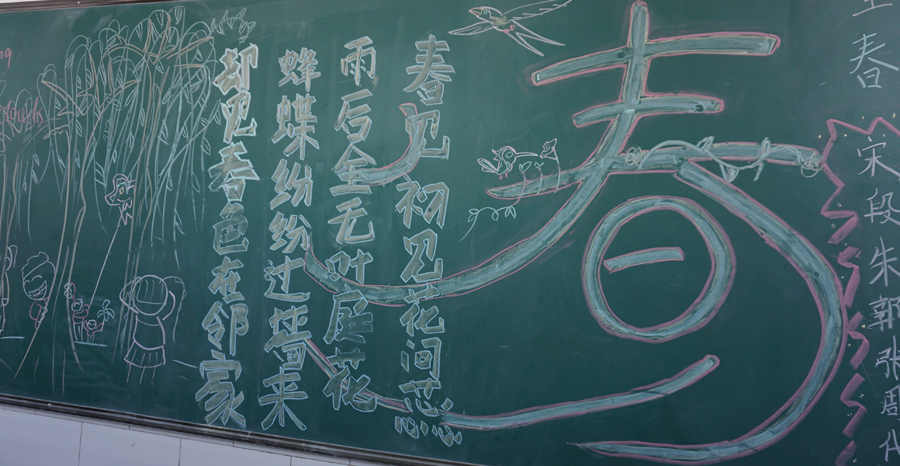 春
宋段朱郭张周
春
春见初见花间蕊
雨后全无叶庭花
蜂蝶纷纷过墙来
却见春色在邻家